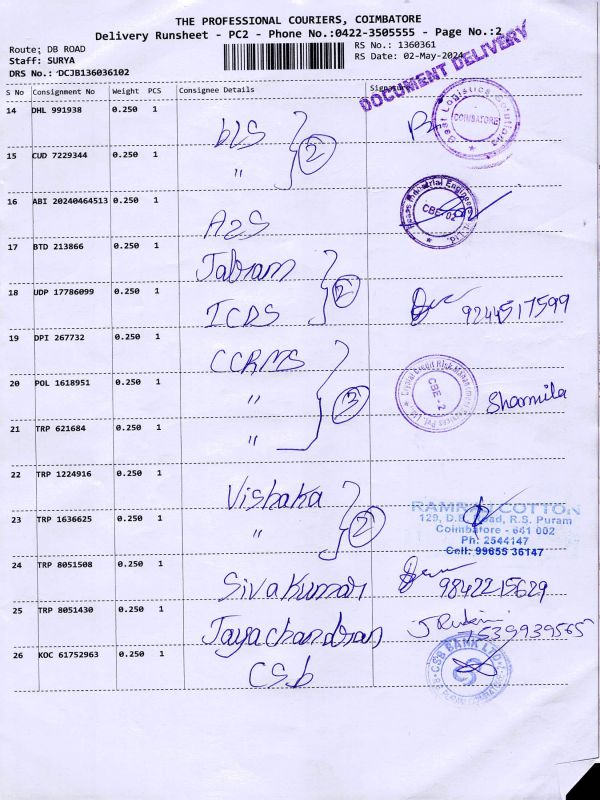 THE PROFESSIONAL COURIERS, COIMBATORE
Delivery Runsheet - PC2 - Phone No.:0422-3505555 - Page No.:2
Route: DB ROAD
Staff: SURYA
DRS No.: DCJB136036102
RS No.: 1360361
RS Date: 02-May-2024
DOCUMENT DELIVERY
S No Consignment No Weight PCS Consignee Details Signature
14 DHL 991938 0.250 1 bLS
Best Logistics Solutions
COIMBATORE
15 CUD 7229344 0.250 1 "
2
16 ABI 20240464513 0.250 1 A2S
CBE-02
17 BTD 213866 0.250 1 Jabram
2
18 UDP 17786099 0.250 1 ICDS 9244517599
19 DPI 267732 0.250 1 CCRMS
20 POL 1618951 0.250 1 "
3
CBE-2
Sharmila
21 TRP 621684 0.250 1 "
22 TRP 1224916 0.250 1 Vishaka
2
RAMRAJ COTTON
129, D.B. Road, R.S. Puram
Coimbatore - 641 002
Ph: 2544147
Cell: 99655 36147
23 TRP 1636625 0.250 1 "
24 TRP 8051508 0.250 1 Sivakumar 9842215629
25 TRP 8051430 0.250 1 Jayachandran
26 KOC 61752963 0.250 1 CSb
CSB BANK LTD